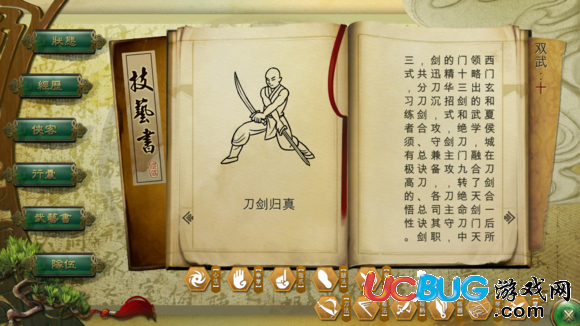 狀態
經歷
俠客
行囊
武藝書
隊伍
技藝書
刀剑归真
双武：十
西门玄和夏侯城在刀剑合一后所
领略出的武学，融合了天剑门天
门十三剑和绝刀门九转绝命刀中
的精华招式，剑主攻，刀主守，
剑迅刀沉，攻守兼备，各司其职
，共分刀剑合、总诀刀、总诀剑
三式，习练者须有极高的悟性。
UCBUG游戏网
.com